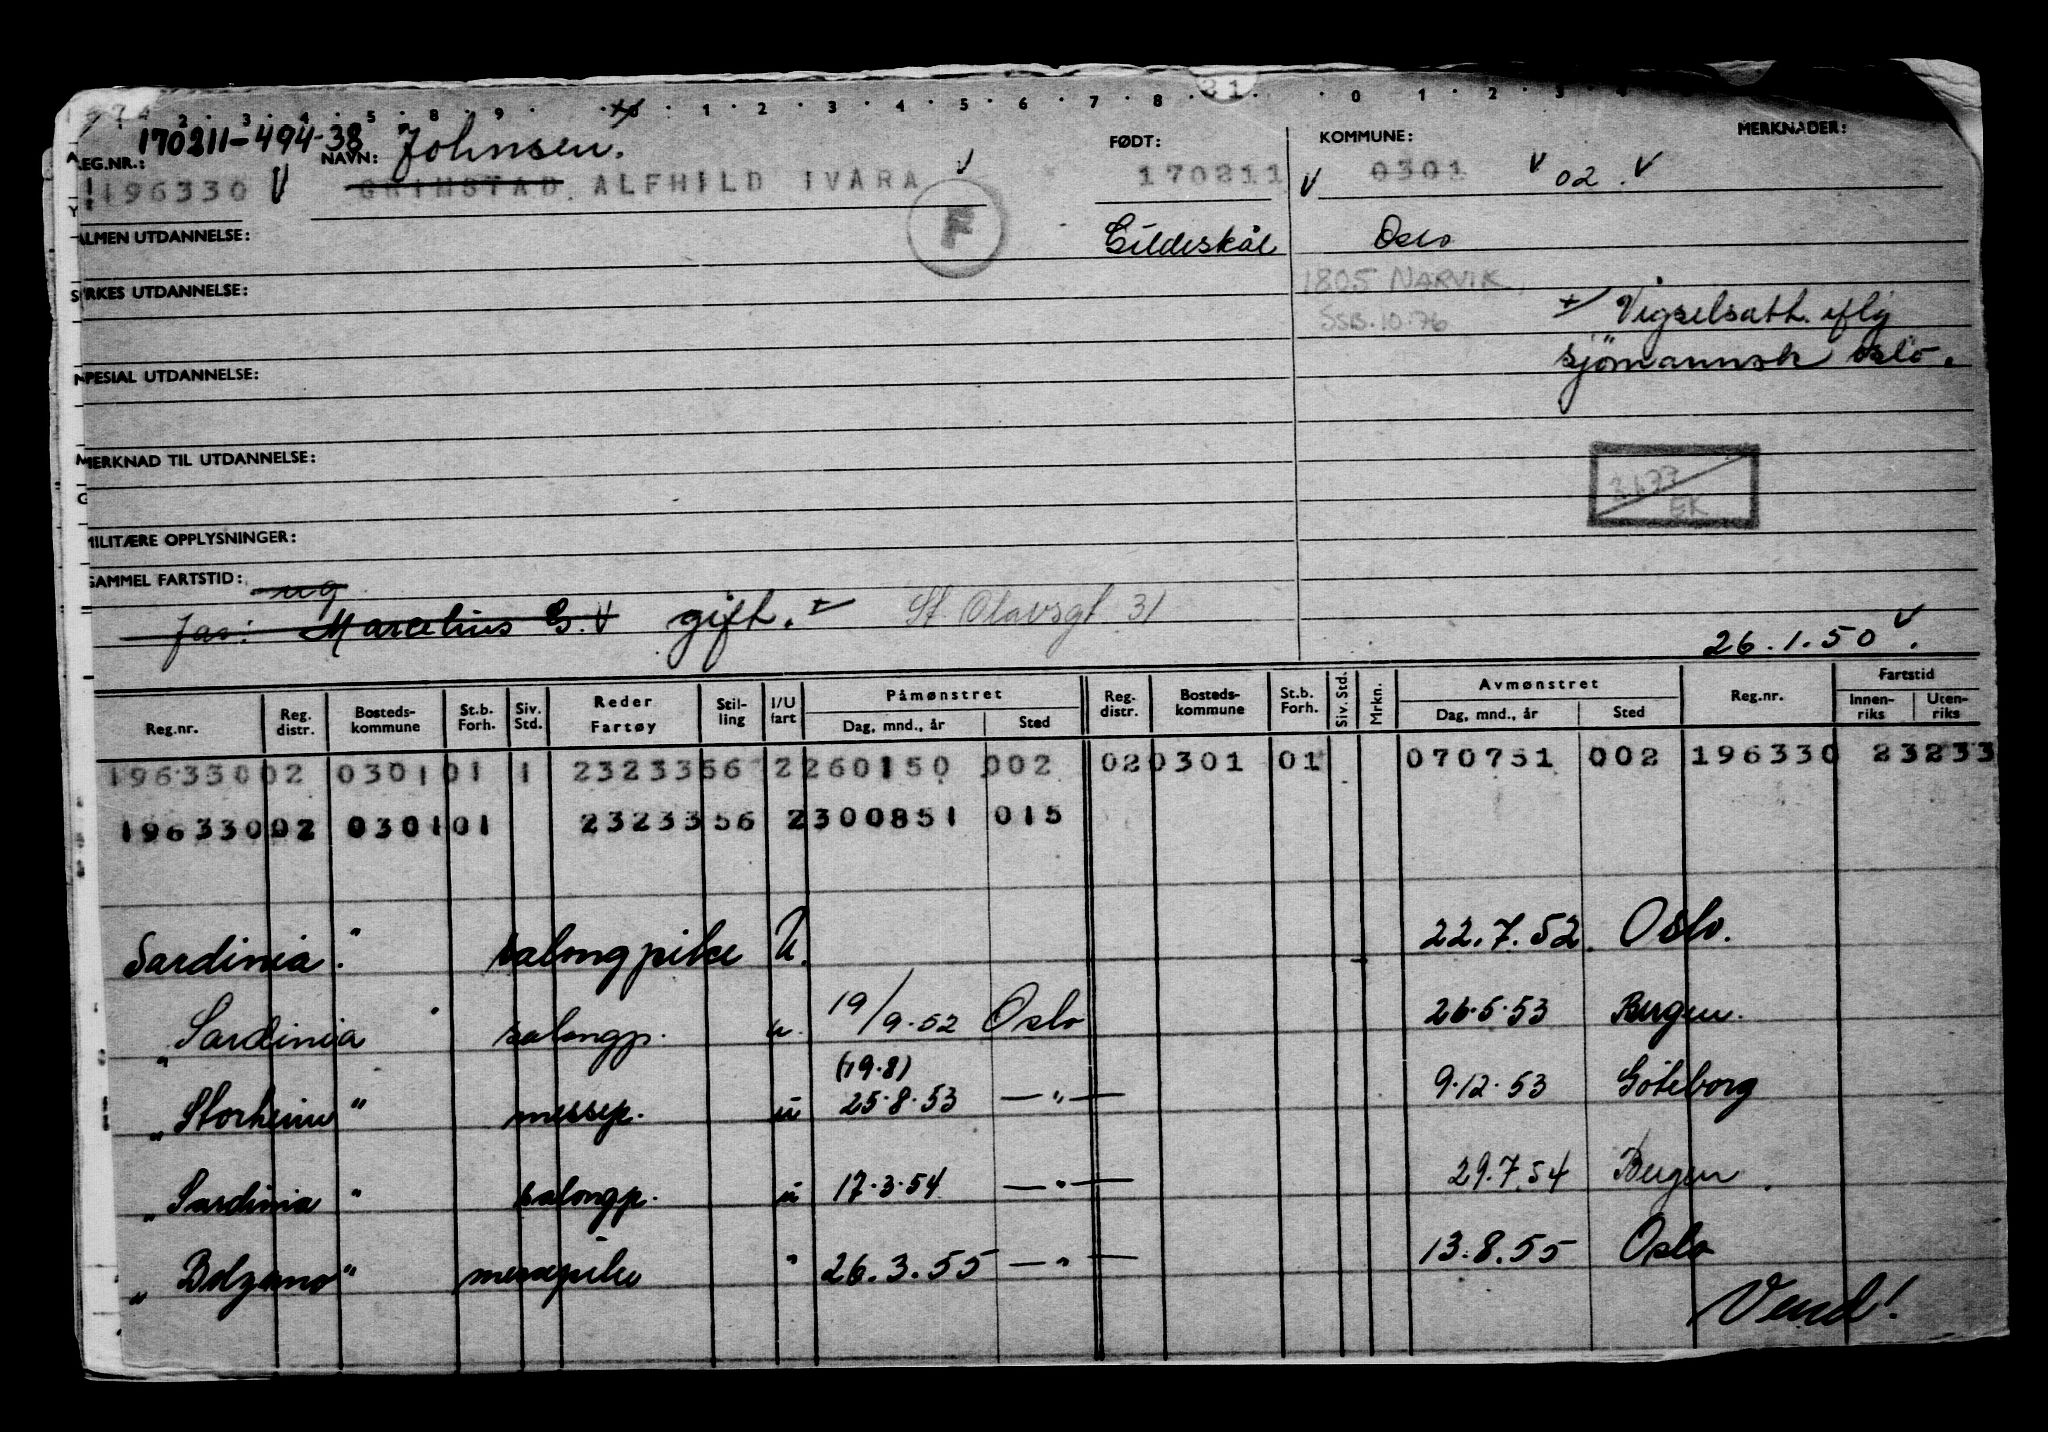 170211-494-38
REG.NR.: NAVN: Johnsen. FØDT: KOMMUNE: MERKNADER:
196330 V GRIMSTAD ALFHILD IVARA 170211 V 0301 V 02. V
F
ALMEN UTDANNELSE: Gildeskål Oslo
YRKES UTDANNELSE: 1805 NARVIK,
SSB.10.76
Vigselsatt. iflg
sjömannsk oslo.
SPESIAL UTDANNELSE:
MERKNAD TIL UTDANNELSE:
EK
MILITÆRE OPPLYSNINGER:
SAMMEL FARTSTID: ug
far: Marcelius G. V gift. St Olavsgt 31
26.1.50 V.
Reg.nr. Reg. distr. Bosteds-kommune St.b. Forh. Siv. Std. Reder Fartøy Stil-ling I/U fart Påmønstret Dag, mnd., år Sted Reg-distr. Bosteds-kommune St.b. Forh. Siv. Std. Mrkn. Avmønstret Dag, mnd., år Sted Reg.nr. Fartstid Innen-riks Uten-riks
196330 02 0301 01 1 23233 56 2 260150 002 02 0301 01 070751 002 196330 23233
196330 02 0301 01 23233 56 2 300851 015
Sardinia " salongpike U. 22.7.52. Oslo.
"Sardinia " salongp. u. 19/9.52 Oslo 26.5.53 Bergen.
(19.8)
"Storheim" messep. u 25.8.53 —"— 9.12.53 Göteborg
"Sardinia" salongp. u 17.3.54 —"— 29.7.54 Bergen.
"Bolzano" messepike " 26.3.55 —"— 13.8.55 Oslo
Vend!